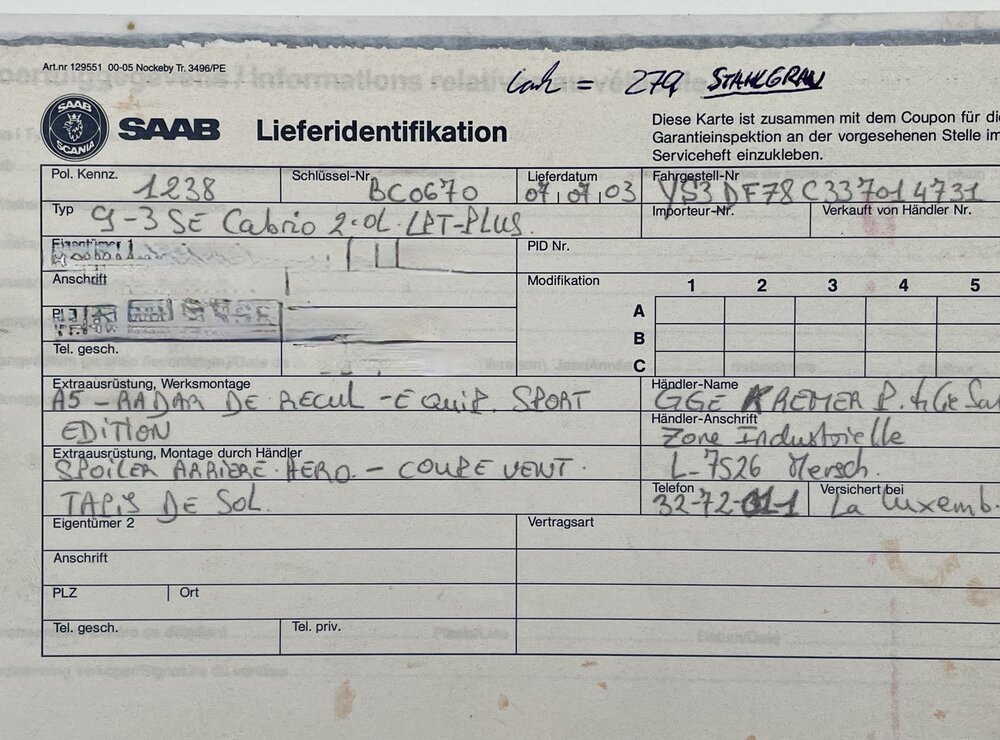 Art.nr 129551 00-05 Nockeby Tr. 3496/PE
Lack = 279 STAHLGRAU
SAAB
SCANIA
SAAB Lieferidentifikation
Diese Karte ist zusammen mit dem Coupon für di
Garantieinspektion an der vorgesehenen Stelle im
Serviceheft einzukleben.
Pol. Kennz. 1238
Schlüssel-Nr. BC0670
Lieferdatum 07,07,03
Fahrgestell-Nr YS3DF78C337014731
Typ 9-3 SE Cabrio 2.0L.LPT-PLUS.
Importeur-Nr.
Verkauft von Händler Nr.
Eigentümer 1
PID Nr.
Anschrift
Modifikation 1 2 3 4 5
A
B
C
Tel. gesch.
Extraausrüstung, Werksmontage
A5 - RADAR DE RECUL - EQUIP. SPORT
EDITION
Händler-Name
GGE KREMER P.
Händler-Anschrift
Zone Industrielle
L-7526 Mersch.
Extraausrüstung, Montage durch Händler
SPOILER ARRIERE AERO. - COUPE VENT.
TAPIS DE SOL.
Telefon 32-72-01-1
Versichert bei La Luxemb.
Eigentümer 2
Vertragsart
Anschrift
PLZ
Ort
Tel. gesch.
Tel. priv.